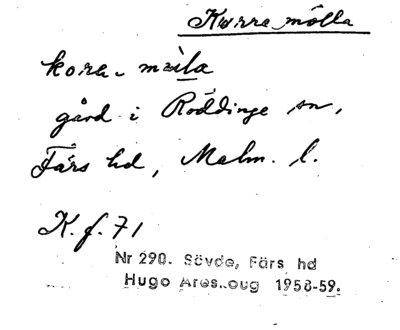 Kurramölla
kora- mɯ̀la
gård i Röddinge sn,
Färs hd, Malm. l.
K. f. 71
Nr 290. Sövde, Färs hd
Hugo Areskoug 1958-59.